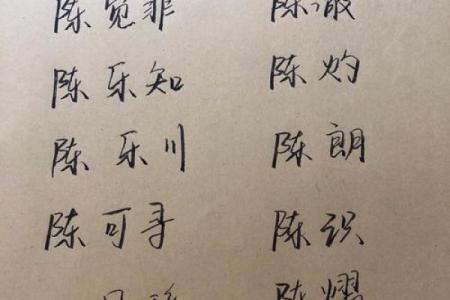 陈宽菲 陈澈
陈乐知 陈灼
陈乐川 陈朗
陈可寻 陈识
陈耀